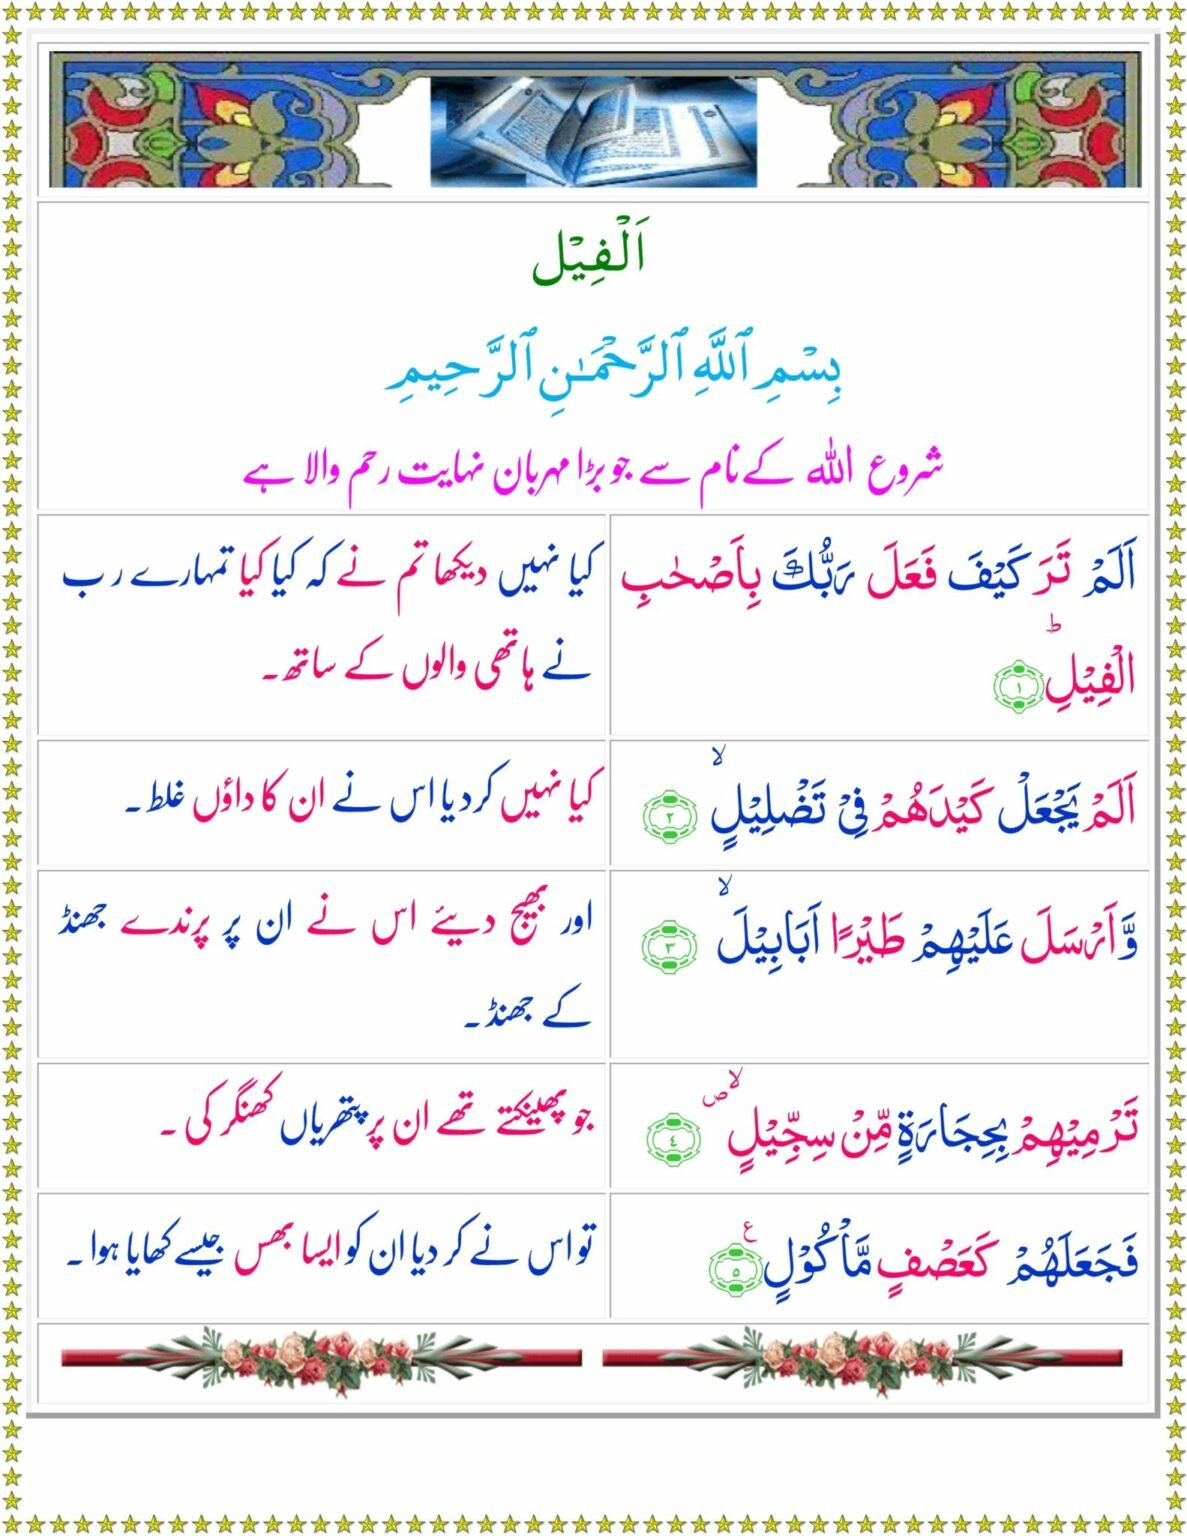 اَلْفِيْل
بِسْمِ ٱللَّهِ ٱلرَّحْمَـٰنِ ٱلرَّحِيمِ
شروع اللہ کے نام سے جو بڑا مہربان نہایت رحم والا ہے
اَلَمْ تَرَ كَيْفَ فَعَلَ رَبُّكَ بِاَصْحٰبِ
الْفِيْلِؕ ۝۱
کیا نہیں دیکھا تم نے کہ کیا کیا تمہارے رب
نے ہاتھی والوں کے ساتھ۔
اَلَمْ يَجْعَلْ كَيْدَهُمْ فِيْ تَضْلِيْلٍۙ ۝۲
کیا نہیں کر دیا اس نے ان کا داؤں غلط۔
وَّاَرْسَلَ عَلَيْهِمْ طَيْرًا اَبَابِيْلَۙ ۝۳
اور بھیج دیئے اس نے ان پر پرندے جھنڈ
کے جھنڈ۔
تَرْمِيْهِمْ بِحِجَارَةٍ مِّنْ سِجِّيْلٍۙ ص ۝٤
جو پھینکتے تھے ان پر پتھریاں کھنگر کی۔
فَجَعَلَهُمْ كَعَصْفٍ مَّاْكُوْلٍ ع ۝۵
تو اس نے کر دیا ان کو ایسا بھس جیسے کھایا ہوا۔